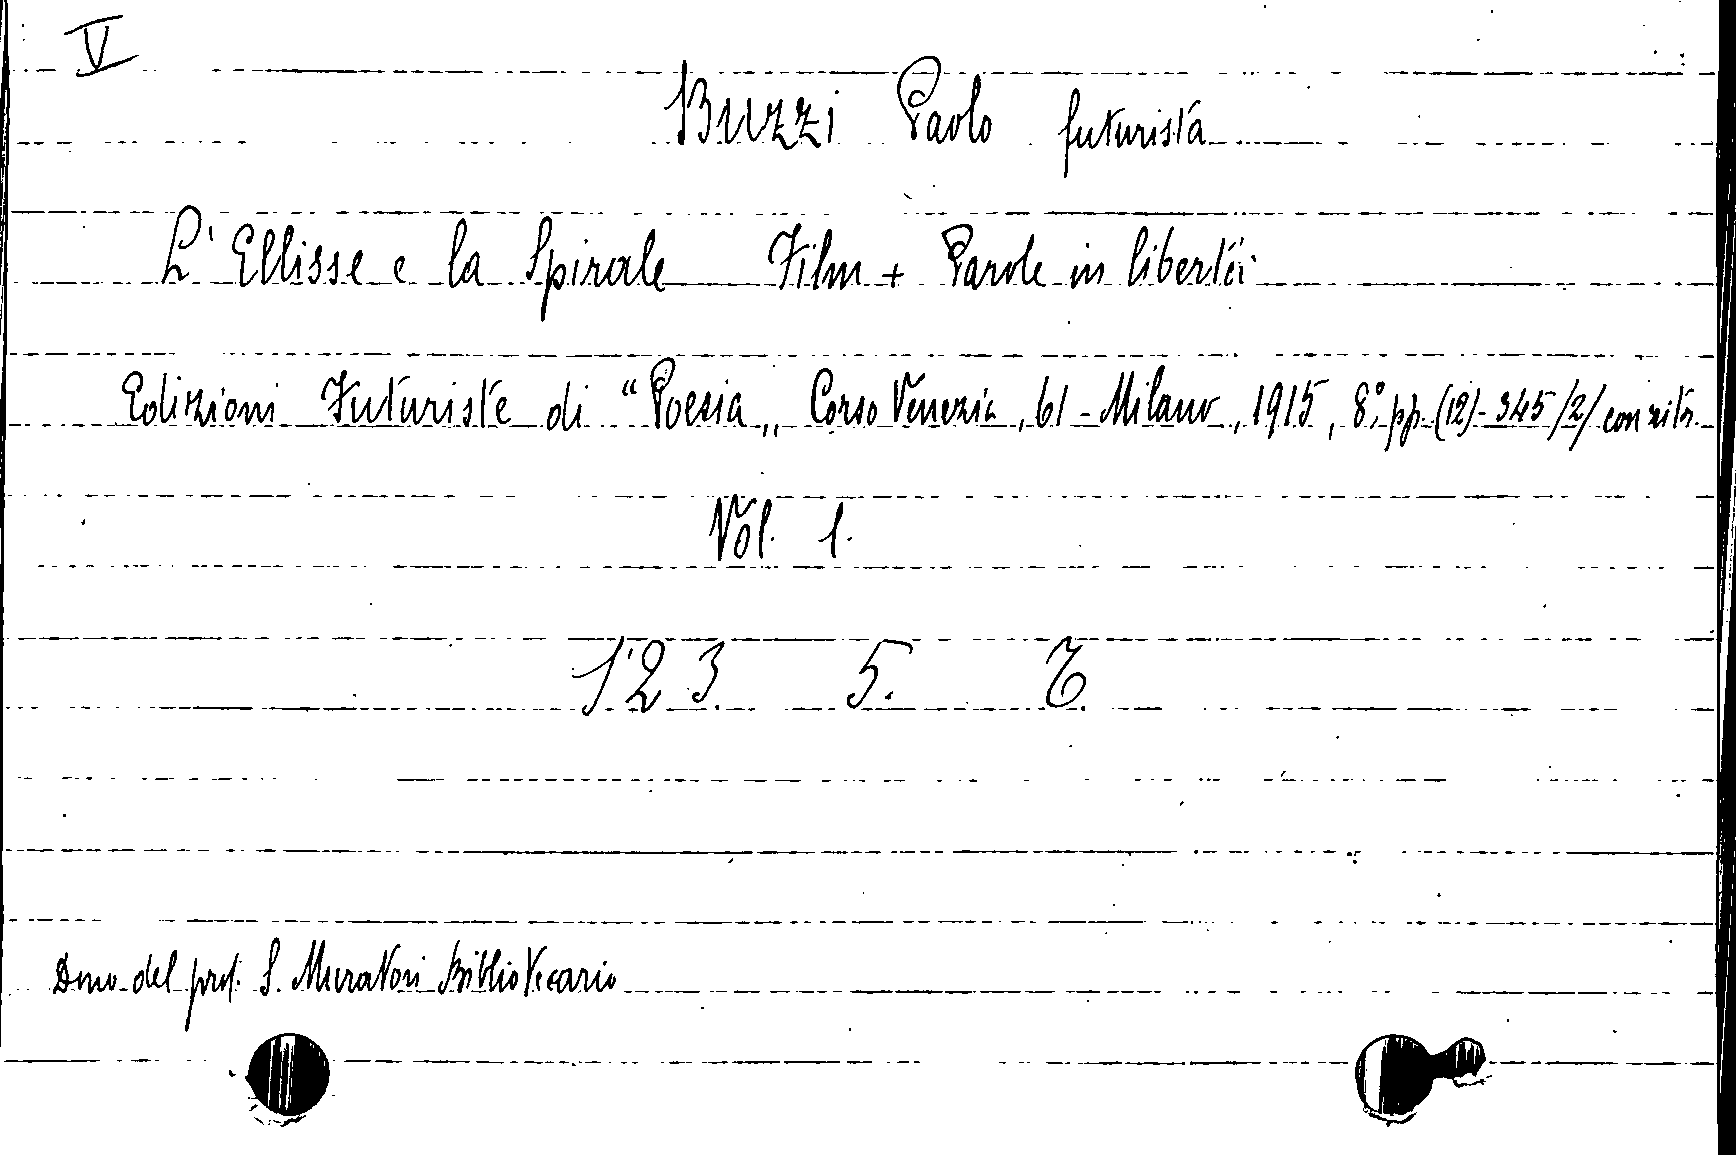 V
Buzzi Paolo futurista
L'Ellisse e la Spirale Film + Parole in libertà
Edizioni Futuriste di "Poesia,, Corso Venezia, 61 - Milano, 1915, 8°, pp. (12)-345/2/ con ritr.
Vol. 1.
123. 5. 7.
Dono del prof. S. Muratori Bibliotecario